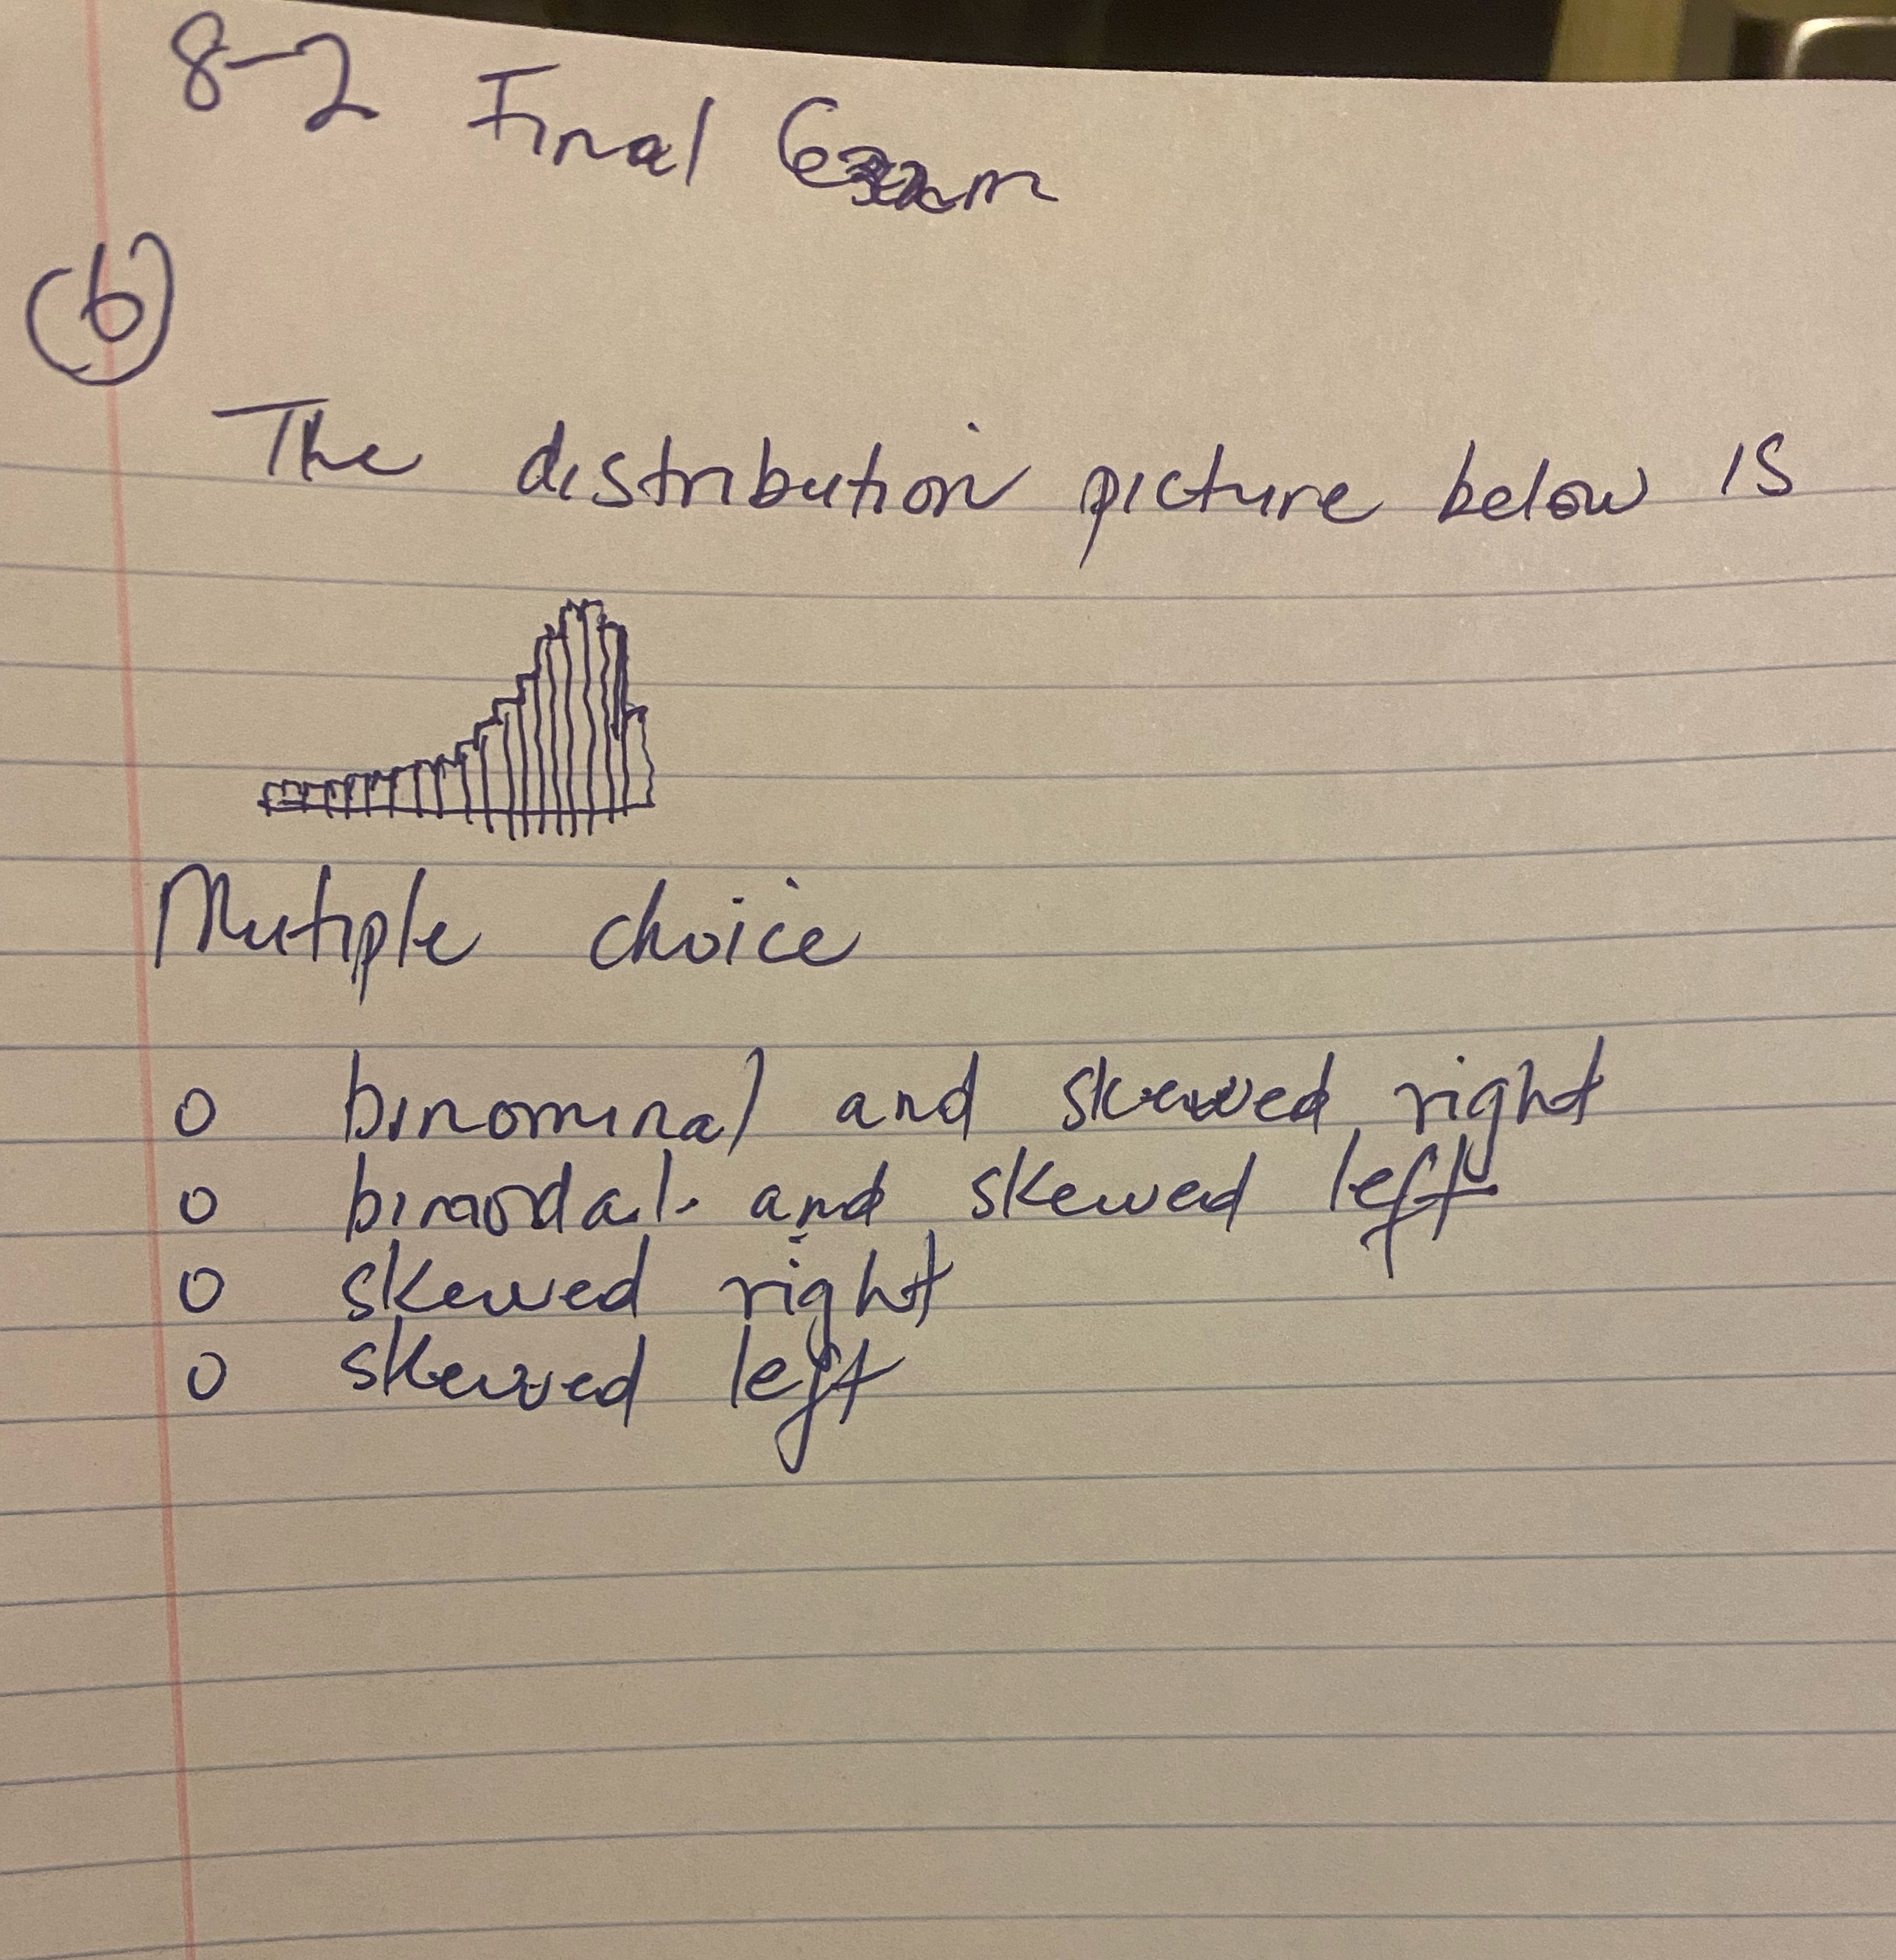 8-2 Final Exam
(6)
The distribution picture below is
Mutiple choice
o binominal and skewed right
o bimodal. and skewed left
o skewed right
o skewed left